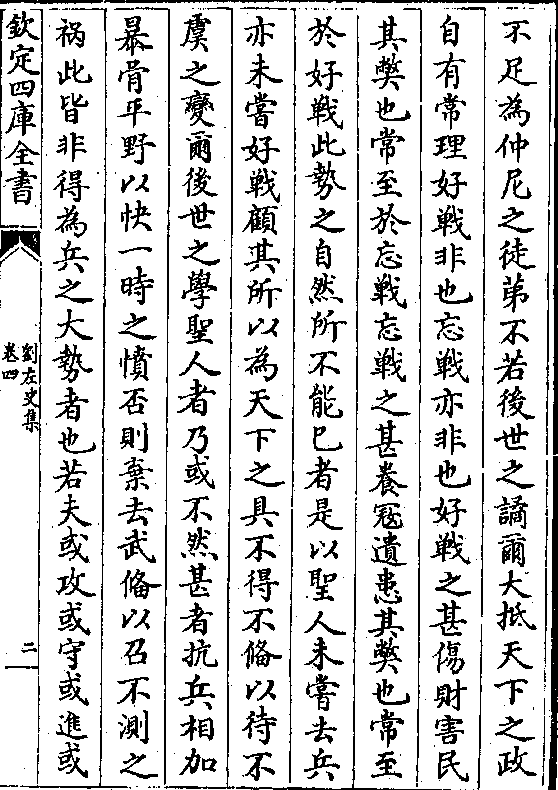 不足為仲尼之徒苐不若後世之譎爾大抵天下之政
自有常理好戰非也忘戰亦非也好戰之甚傷財害民
其弊也常至於忘戰忘戰之甚養冦遺患其弊也常至
於好戰此勢之自然所不能已者是以聖人未嘗去兵
亦未嘗好戰顧其所以為天下之具不得不偹以待不
虞之變爾後世之學聖人者乃或不然甚者抗兵相加
暴骨平野以快一時之憤否則棄去武偹以召不測之
禍此皆非得為兵之大勢者也若夫或攻或守或進或
欽定四庫全書
劉左史集
卷四
二